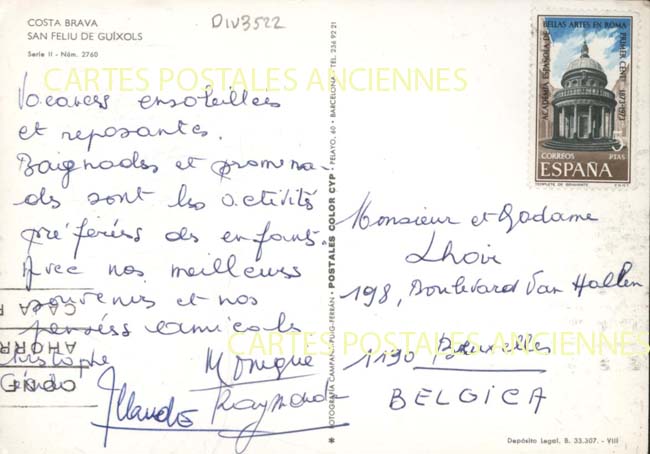 COSTA BRAVA
SAN FELIU DE GUÍXOLS
Serie II - Núm. 2760
DIV3522
CARTES POSTALES ANCIENNES
Vacances ensoleillées
et reposantes.
Baignades et promena-
des sont les activités
préférées des enfants.
Avec nos meilleurs
souvenirs et nos
pensées amicales
Monique
Raymonde
Claude
FOTOGRAFÍA CAMPAÑÁ-PUIG-FERRÁN - POSTALES COLOR CYP - PELAYO, 60 - BARCELONA - TEL. 236 92 21
ACADEMIA ESPAÑOLA DE BELLAS ARTES EN ROMA PRIMER CENT. 1873-1973
5 PTAS
CORREOS
ESPAÑA
TEMPLETE DE BRAMANTE F.N.M.T.
Monsieur et Madame
Lhoir
198, Boulevard Van Hallen
1190 Bruxelles
BELGICA
CARTES POSTALES ANCIENNES
Depósito Legal, B. 33.307. - VIII